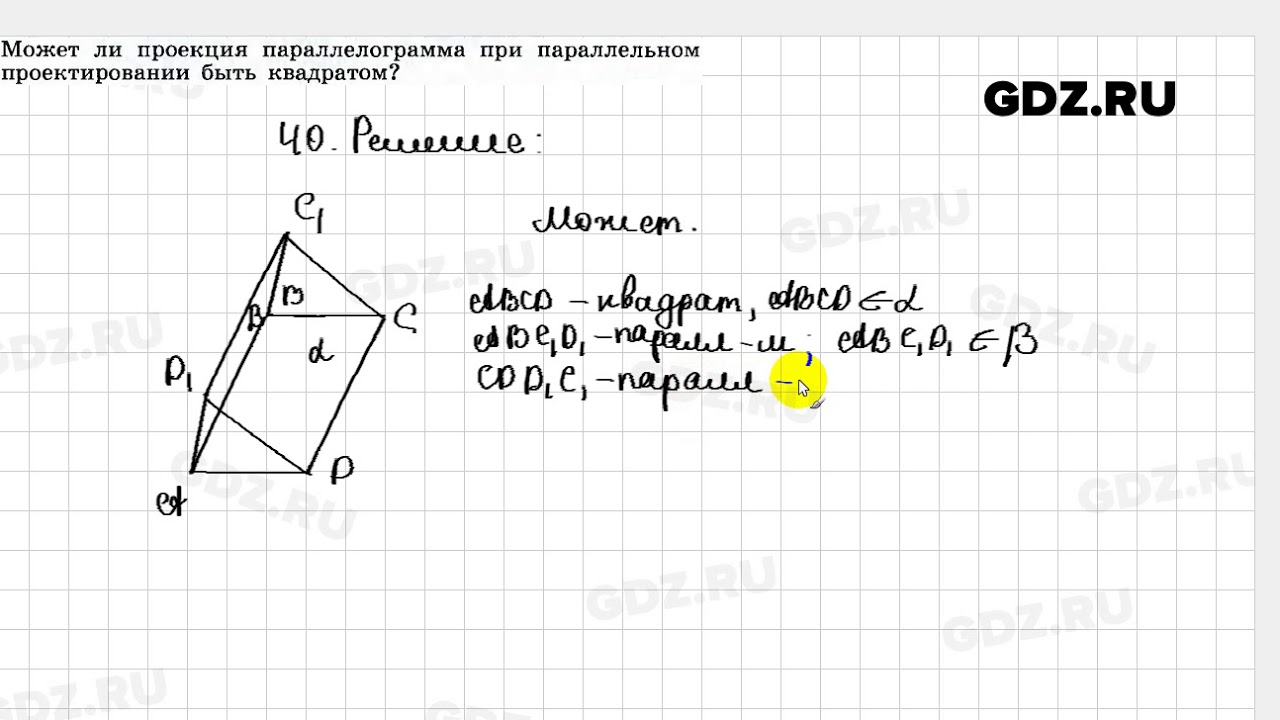 Может ли проекция параллелограмма при параллельном
проектировании быть квадратом?
GDZ.RU
40. Решение:
C₁
Может.
B
B
C
α
D₁
D
A
ABCD – квадрат, ABCD ∈ α
ABC₁D₁ – паралл – м; ABC₁D₁ ∈ β
CDD₁C₁ – паралл –
GDZ.RU
GDZ.RU
GDZ.RU
GDZ.RU
GDZ.RU
GDZ.RU
GDZ.RU
GDZ.RU
GDZ.RU
GDZ.RU